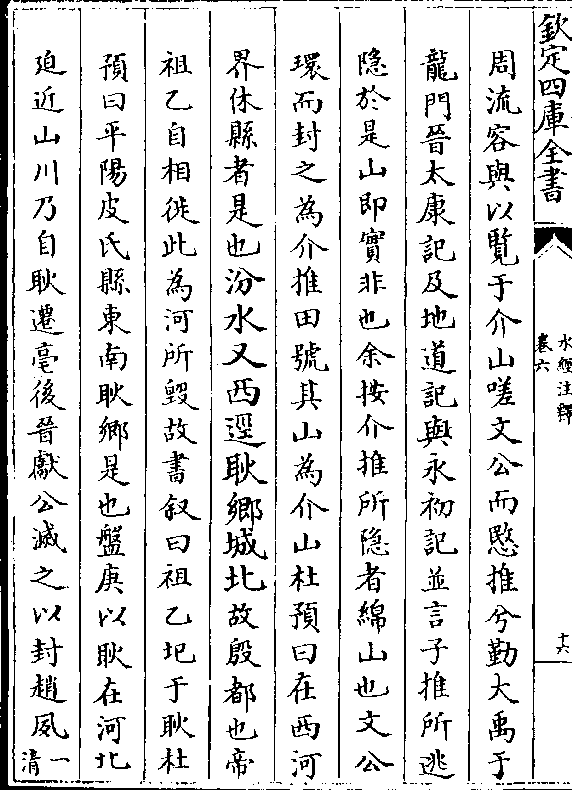 欽定四庫全書
水經注釋
卷六
十六
周流容與以覽于介山嗟文公而愍推兮勤大禹于
龍門晉太康記及地道記與永初記並言子推所逃
隱於是山即實非也余按介推所隱者綿山也文公
環而封之為介推田號其山為介山杜預曰在西河
界休縣者是也汾水又西逕耿鄉城北故殷都也帝
祖乙自相徙此為河所毀故書叙曰祖乙圮于耿杜
預曰平陽皮氏縣東南耿鄉是也盤庚以耿在河北
迫近山川乃自耿遷亳後晉獻公滅之以封趙夙一清